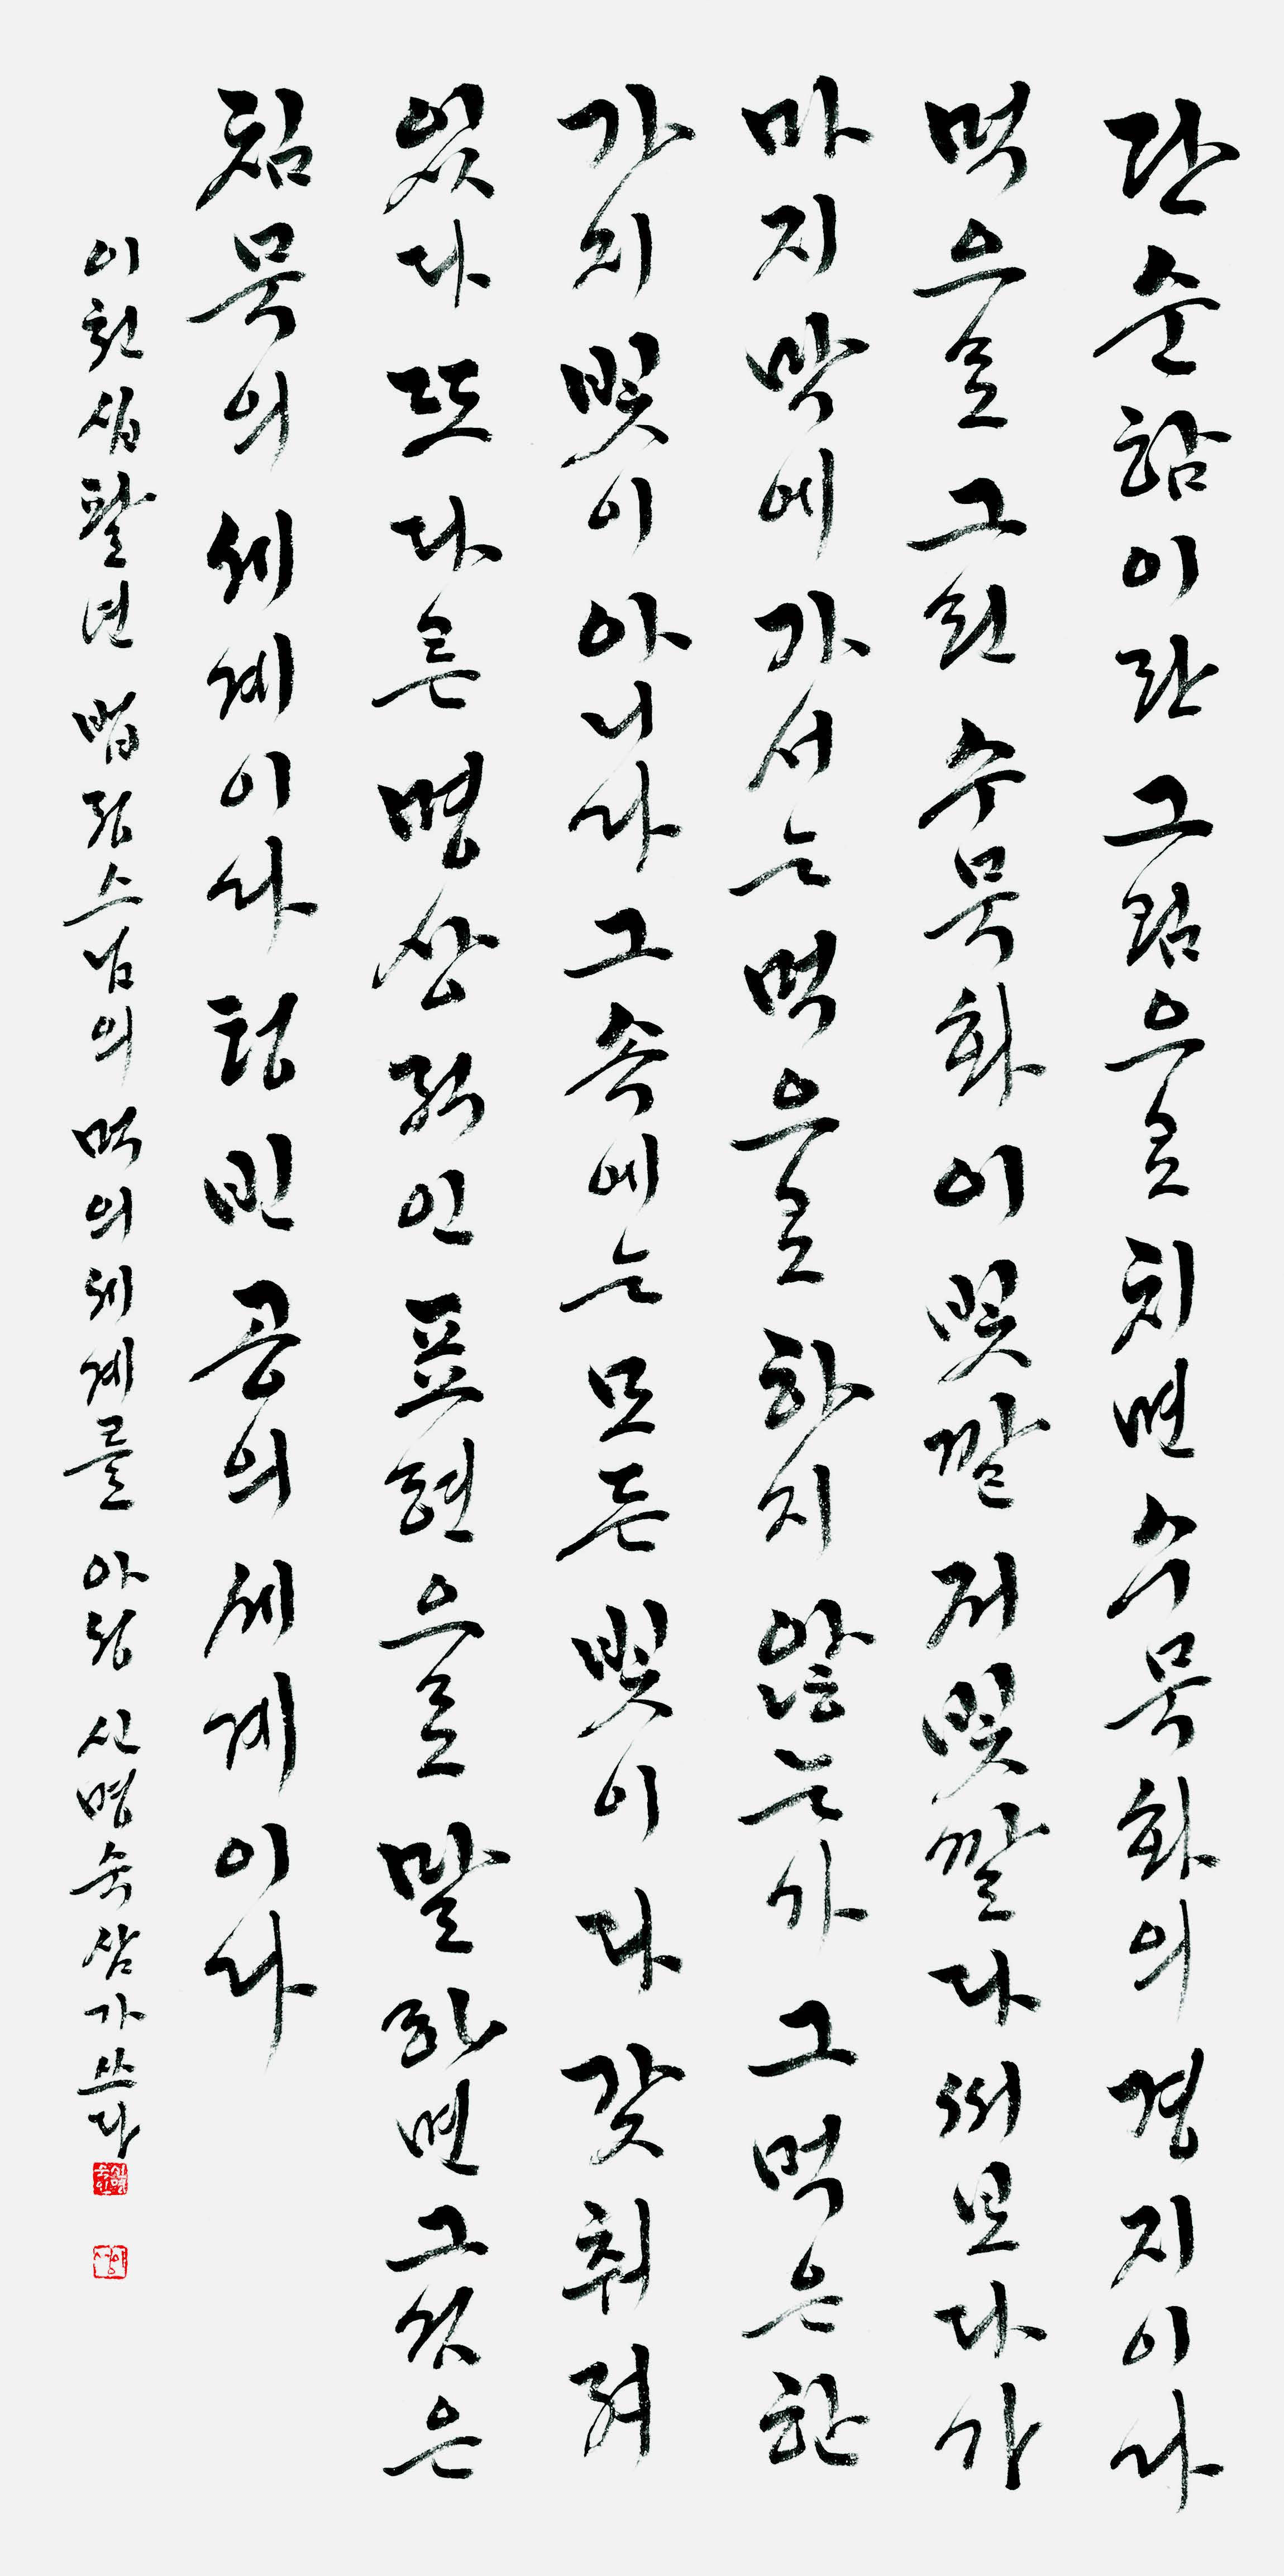 단순함이란 그림으로 치면 수묵화의 경지이다
먹으로 그린 수묵화 이 빛깔 저 빛깔 다 써보다가
마지막에 가서는 먹으로 하지 않는가 그 먹은 한
가지 빛이 아니다 그 속에는 모든 빛이 다 갖춰져
있다 또 다른 명상적인 표현으로 말하면 그것은
침묵의 세계이다 텅 빈 공의 세계이다
이천십팔년 법정스님의 먹의 세계를 신명숙 삼가 쓰다